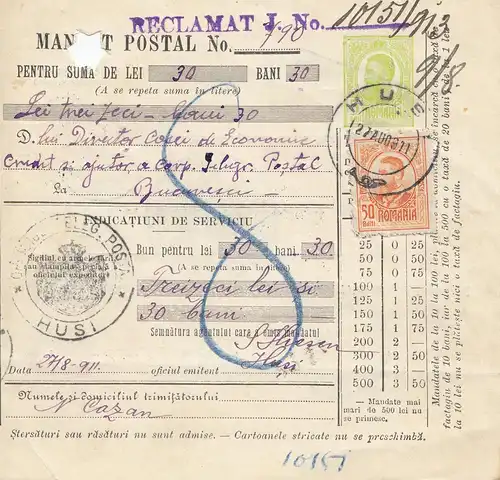 RECLAMAT J. No. 10151/912
MANDAT POSTAL No. 190
9/8
PENTRU SUMA DE LEI 30 BANI 30
(A se repeta suma în litere)
Lei treizeci bani 30
D. lui Director Casei de Economie
Credit si ajutor a corp. Telegr. Postal
La Bucuresci
INDICAȚIUNI DE SERVICIU
Bun pentru lei 30 bani 30.
(A se repeta suma în litere)
Treizeci lei si
30 bani
Semnătura agentului care a emis mandatul
Huși
Data 27/8-911. oficiul emitent
Numele și domiciliul trimițătorului
N. Cazan
Ștersături sau răsături nu sunt admise. — Cartoanele stricate nu se preschimbă.
TELEG. POSTAL
Sigiliul cu armele țării
sau ștampila specială
oficiului expeditor
HUSI
HUSI
27 AUG 911
50 BANI
ROMANIA
25 0 25
50 0 50
75 0 75
100 1 —
125 1 25
150 1 50
175 1 75
200 2 —
300 2 50
400 3 —
500 3 50
— Mandate mai
mari de 500 lei nu
se primesc.
Mandatele de la 10 la 100 lei,
factagiu de 10 bani, iar de la 100 la 500 cu o taxă de 20 bani
la 10 lei nu se plătește nici o taxă de factagiu.
10151